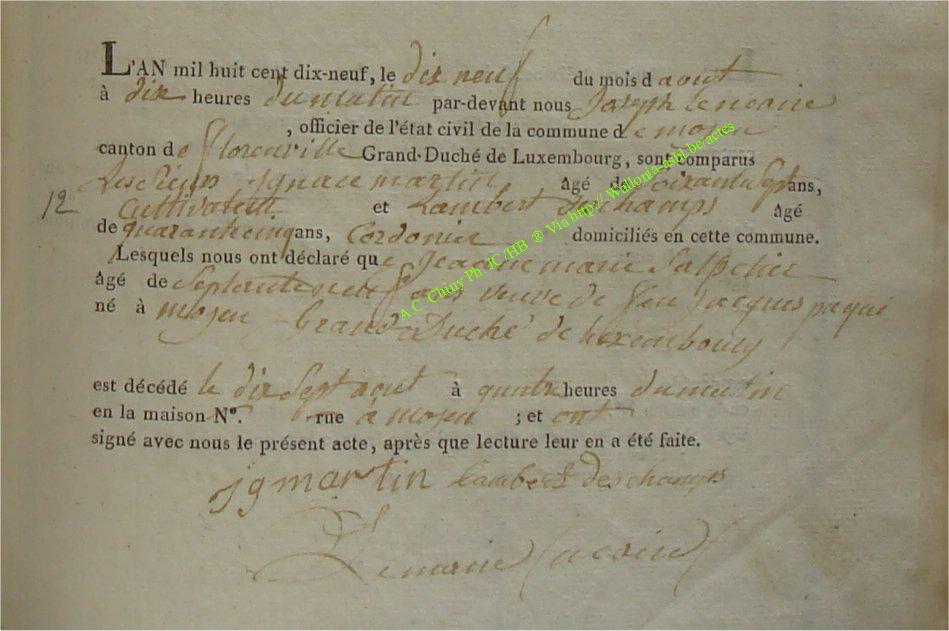 L'AN mil huit cent dix-neuf, le dix neuf du mois d aout
à dix heures du matin par-devant nous Joseph Lemoine
, officier de l'état civil de la commune de moyen
canton de florenville Grand-Duché de Luxembourg, sont comparus
Les Sieurs Ignace martin âgé de soixante Sept ans,
12
Cultivateur et Lambert deschamps âgé
de quarante cinq ans, Cordonier domiciliés en cette commune.
Lesquels nous ont déclaré que Jeanne marie
âgé de Septante neuf ans veuve de feu Jacques paqué
né à moyen Grand Duché de Luxembourg
est décédé le dix Sept aout à quatre heures du matin
en la maison N°. rue a moyen ; et ont
signé avec nous le présent acte, après que lecture leur en a été faite.
Jg martin Lambert deschamps
A.C. Chiny Ph. JC /HB ® Via http://Wallonia-asbl.be/actes